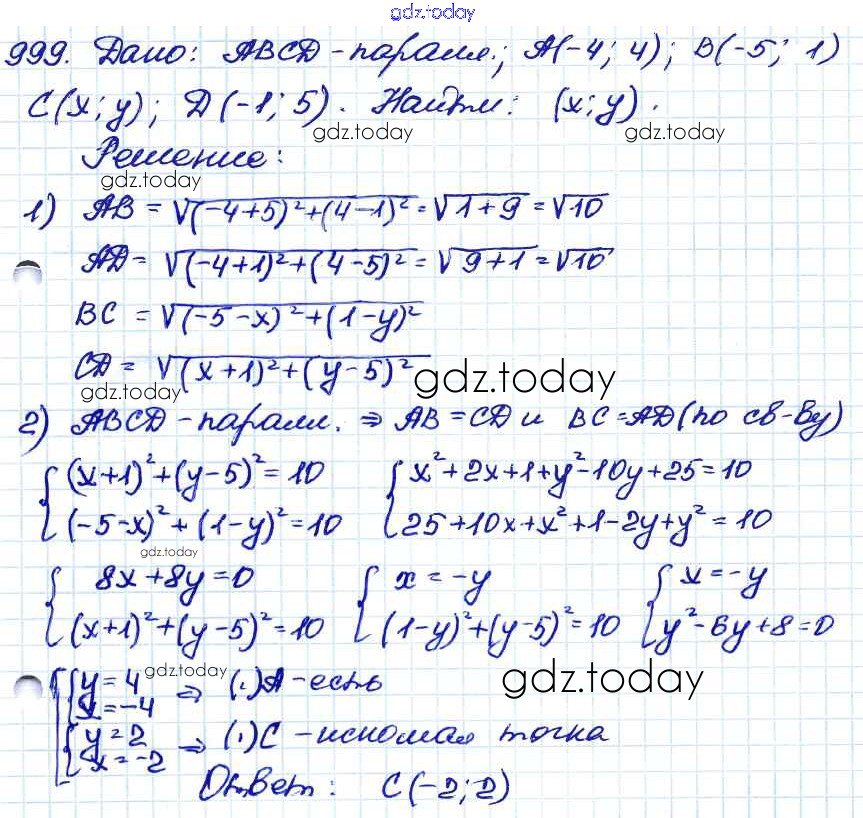 gdz.today
999. Дано: ABCD - паралл.; A(-4; 4); B(-5; 1)
C(x; y); D(-1; 5). Найти: (x; y).
gdz.today gdz.today
Решение:
gdz.today
1) AB = √(-4+5)²+(4-1)² = √1+9 = √10
AD = √(-4+1)²+(4-5)² = √9+1 = √10
BC = √(-5-x)²+(1-y)²
CD = √(x+1)²+(y-5)² gdz.today
gdz.today
2) ABCD - паралл. ⇒ AB = CD и BC = AD (по св-ву)
{ (x+1)²+(y-5)² = 10 { x²+2x+1+y²-10y+25 = 10
(-5-x)²+(1-y)² = 10 25+10x+x²+1-2y+y² = 10
gdz.today
{ 8x+8y = 0 { x = -y { x = -y
(x+1)²+(y-5)² = 10 (1-y)²+(y-5)² = 10 y²-6y+8 = 0
gdz.today
[ { y = 4 ⇒ (·)A - есть gdz.today
x = -4
{ y = 2 ⇒ (·)C - искомая точка
x = -2
Ответ: C(-2; 2)